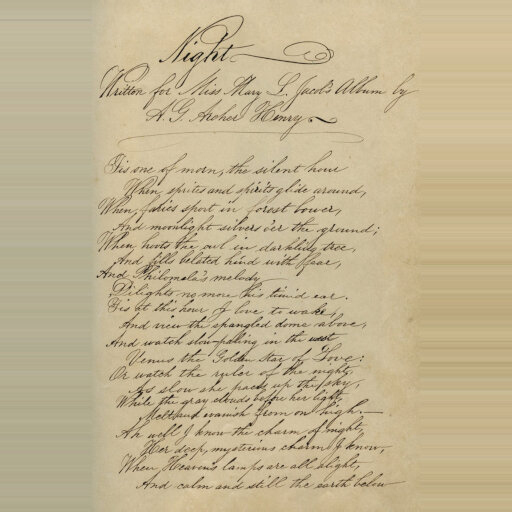 Night
Written for Miss Mary L. Jacob's Album by
A. G. Archer Henry.
Tis one of morn, the silent hour
When, sprites and spirits glide around,
When, faries sport in forest bower,
And moonlight silvers o'er the ground;
When, hoots the owl in darkling tree,
And fills belated hind with fear,
And Philomela's melody
Delights no more his timid ear.
Tis at this hour I love to wake,
And view the spangled dome above,
And watch slow paling in the west
Venus the Golden star of Love:
Or watch the ruler of the night,
As slow she paces up the sky,
While the gray clouds before her light,
Melt and evanish from on high.—
Ah well I know the charm of night,
Her deep, mysterious charm I know,
When, Heaven's lamps are all alight,
And calm and still the earth below